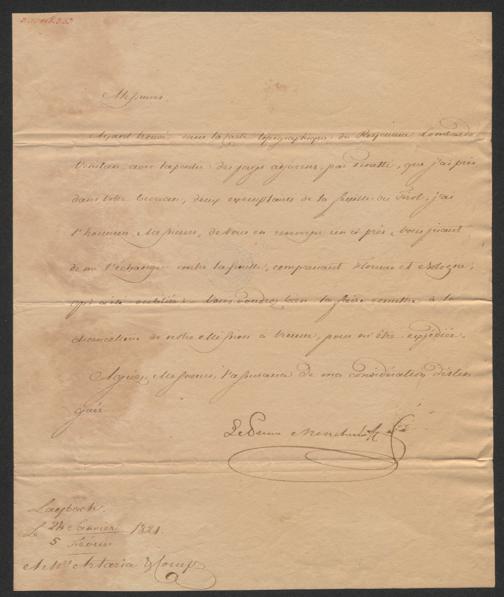 Messieurs
Ayant trouvé dans la carte topographique du Royaume Lombardo
Venitien avec la partie des pays adjacens, que j'ai prise
dans votre deux exemplaires de la feuille du Tirol, j'ai
l'honneur Messieurs, de Vous en renvoyer un ci près, Vous priant
de me l'échanger contre la feuille, comprenant Florence et Bologne,
qui a été oubliée. Vous voudrez bien la faire remettre à la
chancellerie de notre Mission à Vienne, pour m'être expédiée.
Agréez, Messieurs, l'assurance de ma considération distin
guée.
Le Prince
Laybach.
Le 24 Janvier 1821.
5 Février
A Mrs Artaria & Comp